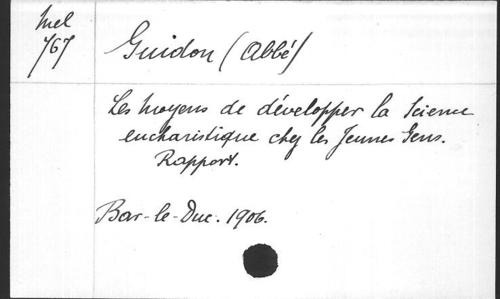 Mel
767
Guidon (Abbé)
Les Moyens de développer la Science
eucharistique chez les Jeunes Gens.
Rapport.
Bar-le-Duc. 1906.